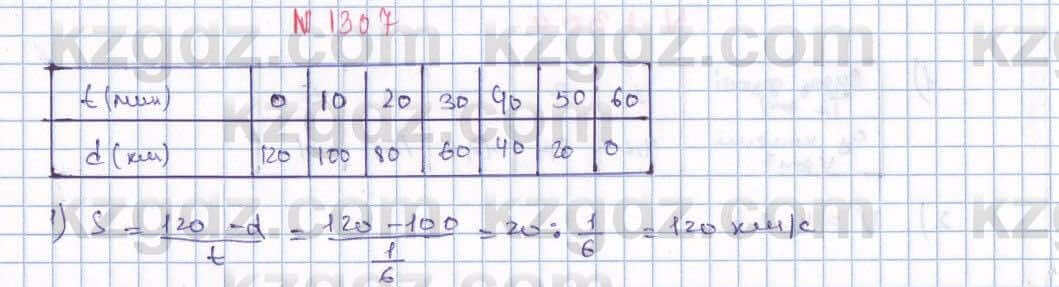 № 1307
t (мин) 0 10 20 30 40 50 60
d (км) 120 100 80 60 40 20 0
1) S = 120 - d / t = 120 - 100 / 1/6 = 20 : 1/6 = 120 км/с
kzgdz.com kzgdz.com kz
kzgdz.com kzgdz.com
kzgdz.com kzgdz.com kz